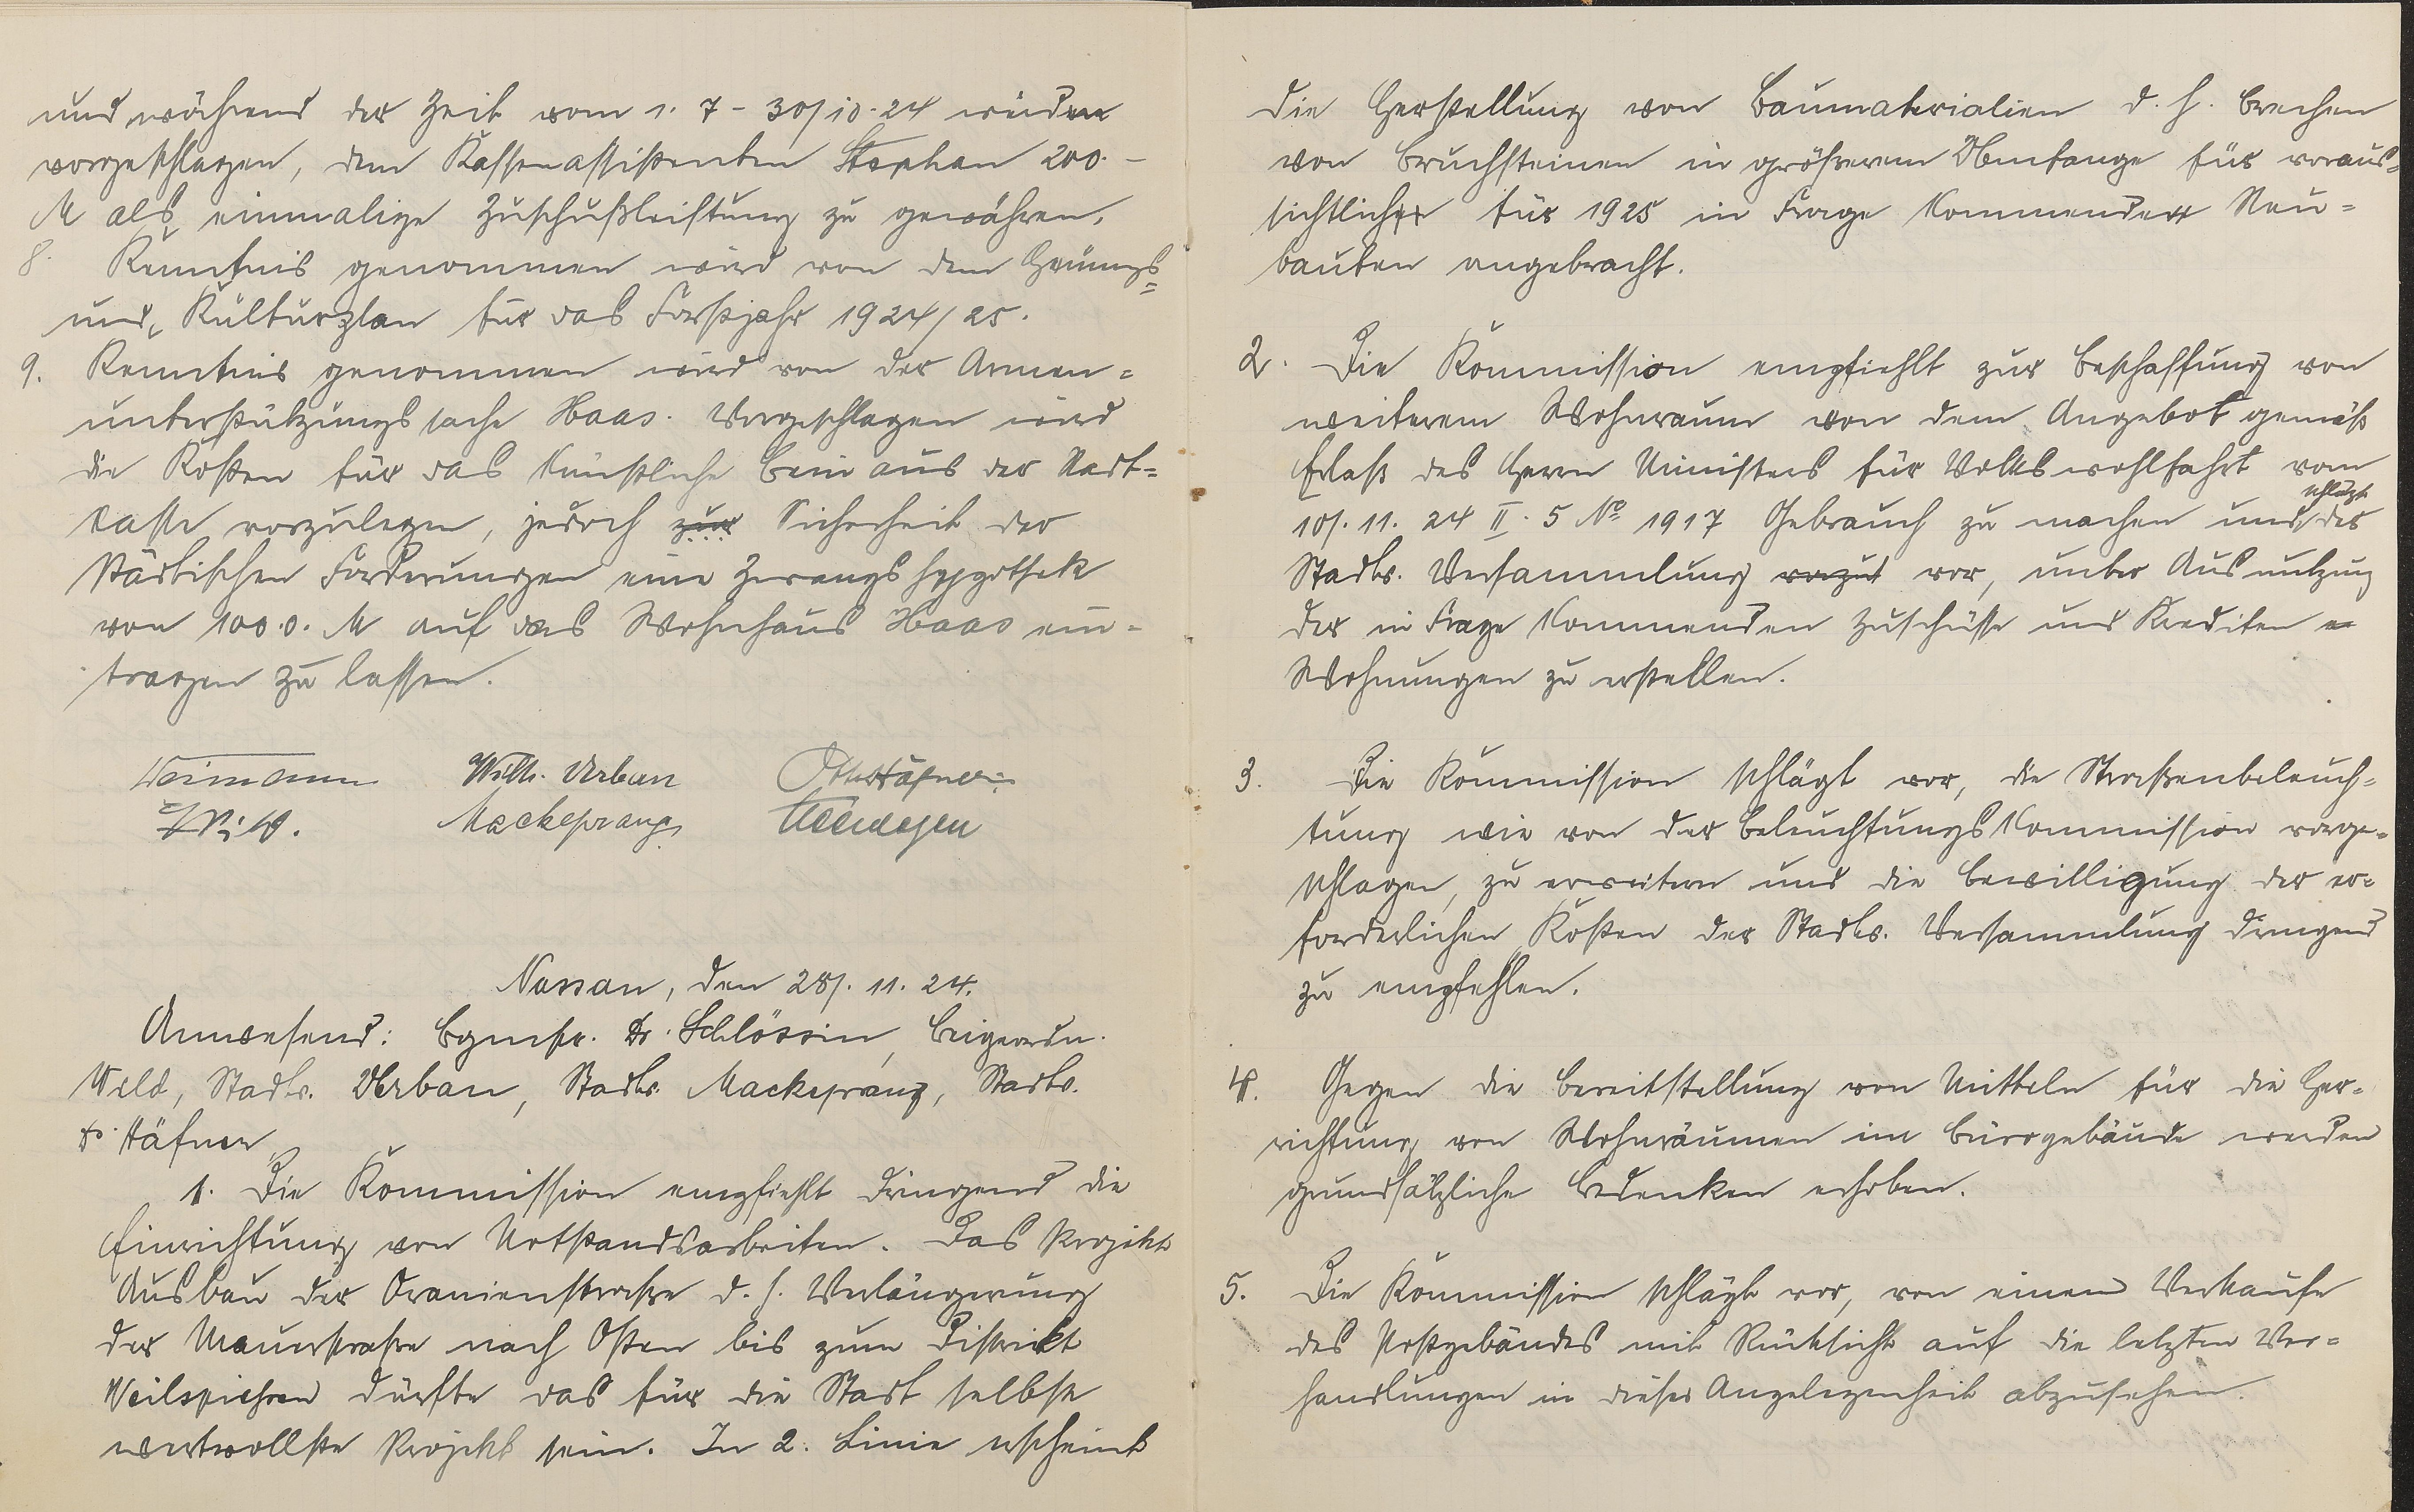 und während der Zeit vom 1. 7 - 30/10.24 wurden
vorgeschlagen, dem Kassenassistenten Stephan 200.-
M als einmalige Zuschußleistung zu gewähren.
8. Kenntnis genommen wird von dem Hauungs=
und Kulturplan für das Forstjahr 1924/25.
9. Kenntnis genommen wird von der Armen=
unterstützungssache Haas. Vorgeschlagen wird
die Kosten für das künstliche Bein aus der Stadt=
kasse vorzulegen, jedoch zur Sicherheit der
städtischen Forderungen eine Zwangshypothek
von 100.0. M auf das Wohnhaus Haas ein=
tragen zu lassen.
Wilh. Urban Otto Häfner
Mackeprang
Nassau, den 28/. 11. 24.
Anwesend: Bgmstr. Dr. Schlössin, Beigeordn.
Weld, Stadtv. Urban, Stadtv. Mackeprang, Stadtv.
Dr. Häfner.
1. Die Kommission empfiehlt dringend die
Einrichtung von Notstandsarbeiten. Das Projekt
Ausbau der Oranienstraße d. h. Verlängerung
der Mauerstraße nach Osten bis zum Distrikt
dürfte das für die Stadt selbst
wertvollste Projekt sein. In 2. Linie erscheint
die Herstellung von Baumaterialien d. h. Brechen
von Bruchsteinen in größerem Umfange für voraus=
sichtlich für 1925 in Frage kommenden Neu=
bauten angebracht.
2. Die Kommission empfiehlt zur Beschaffung von
weiterem Wohnraum von dem Angebot gemäß
Erlaß des Herrn Ministers für Volkswohlfahrt vom
10/. 11. 24 II. 5 No 1917 Gebrauch zu machen und schlägt der
Stadtv. Versammlung vor, unter Ausnutzung
der in Frage kommenden Zuschüsse und Krediten
Wohnungen zu erstellen.
3. Die Kommission schlägt vor, die Straßenbeleuch=
tung wie von der Beleuchtungskommission vorge=
schlagen, zu erweitern und die Bewilligung der er=
forderlichen Kosten der Stadtv. Versammlung dringend
zu empfehlen.
4. Gegen die Bereitstellung von Mitteln für die Her=
richtung von Wohnräumen im Bürogebäude werden
grundsätzliche Bedenken erhoben.
5. Die Kommission schlägt vor, von einem Verkaufe
des Postgebäudes mit Rücksicht auf die letzten Ver=
handlungen in dieser Angelegenheit abzusehen.